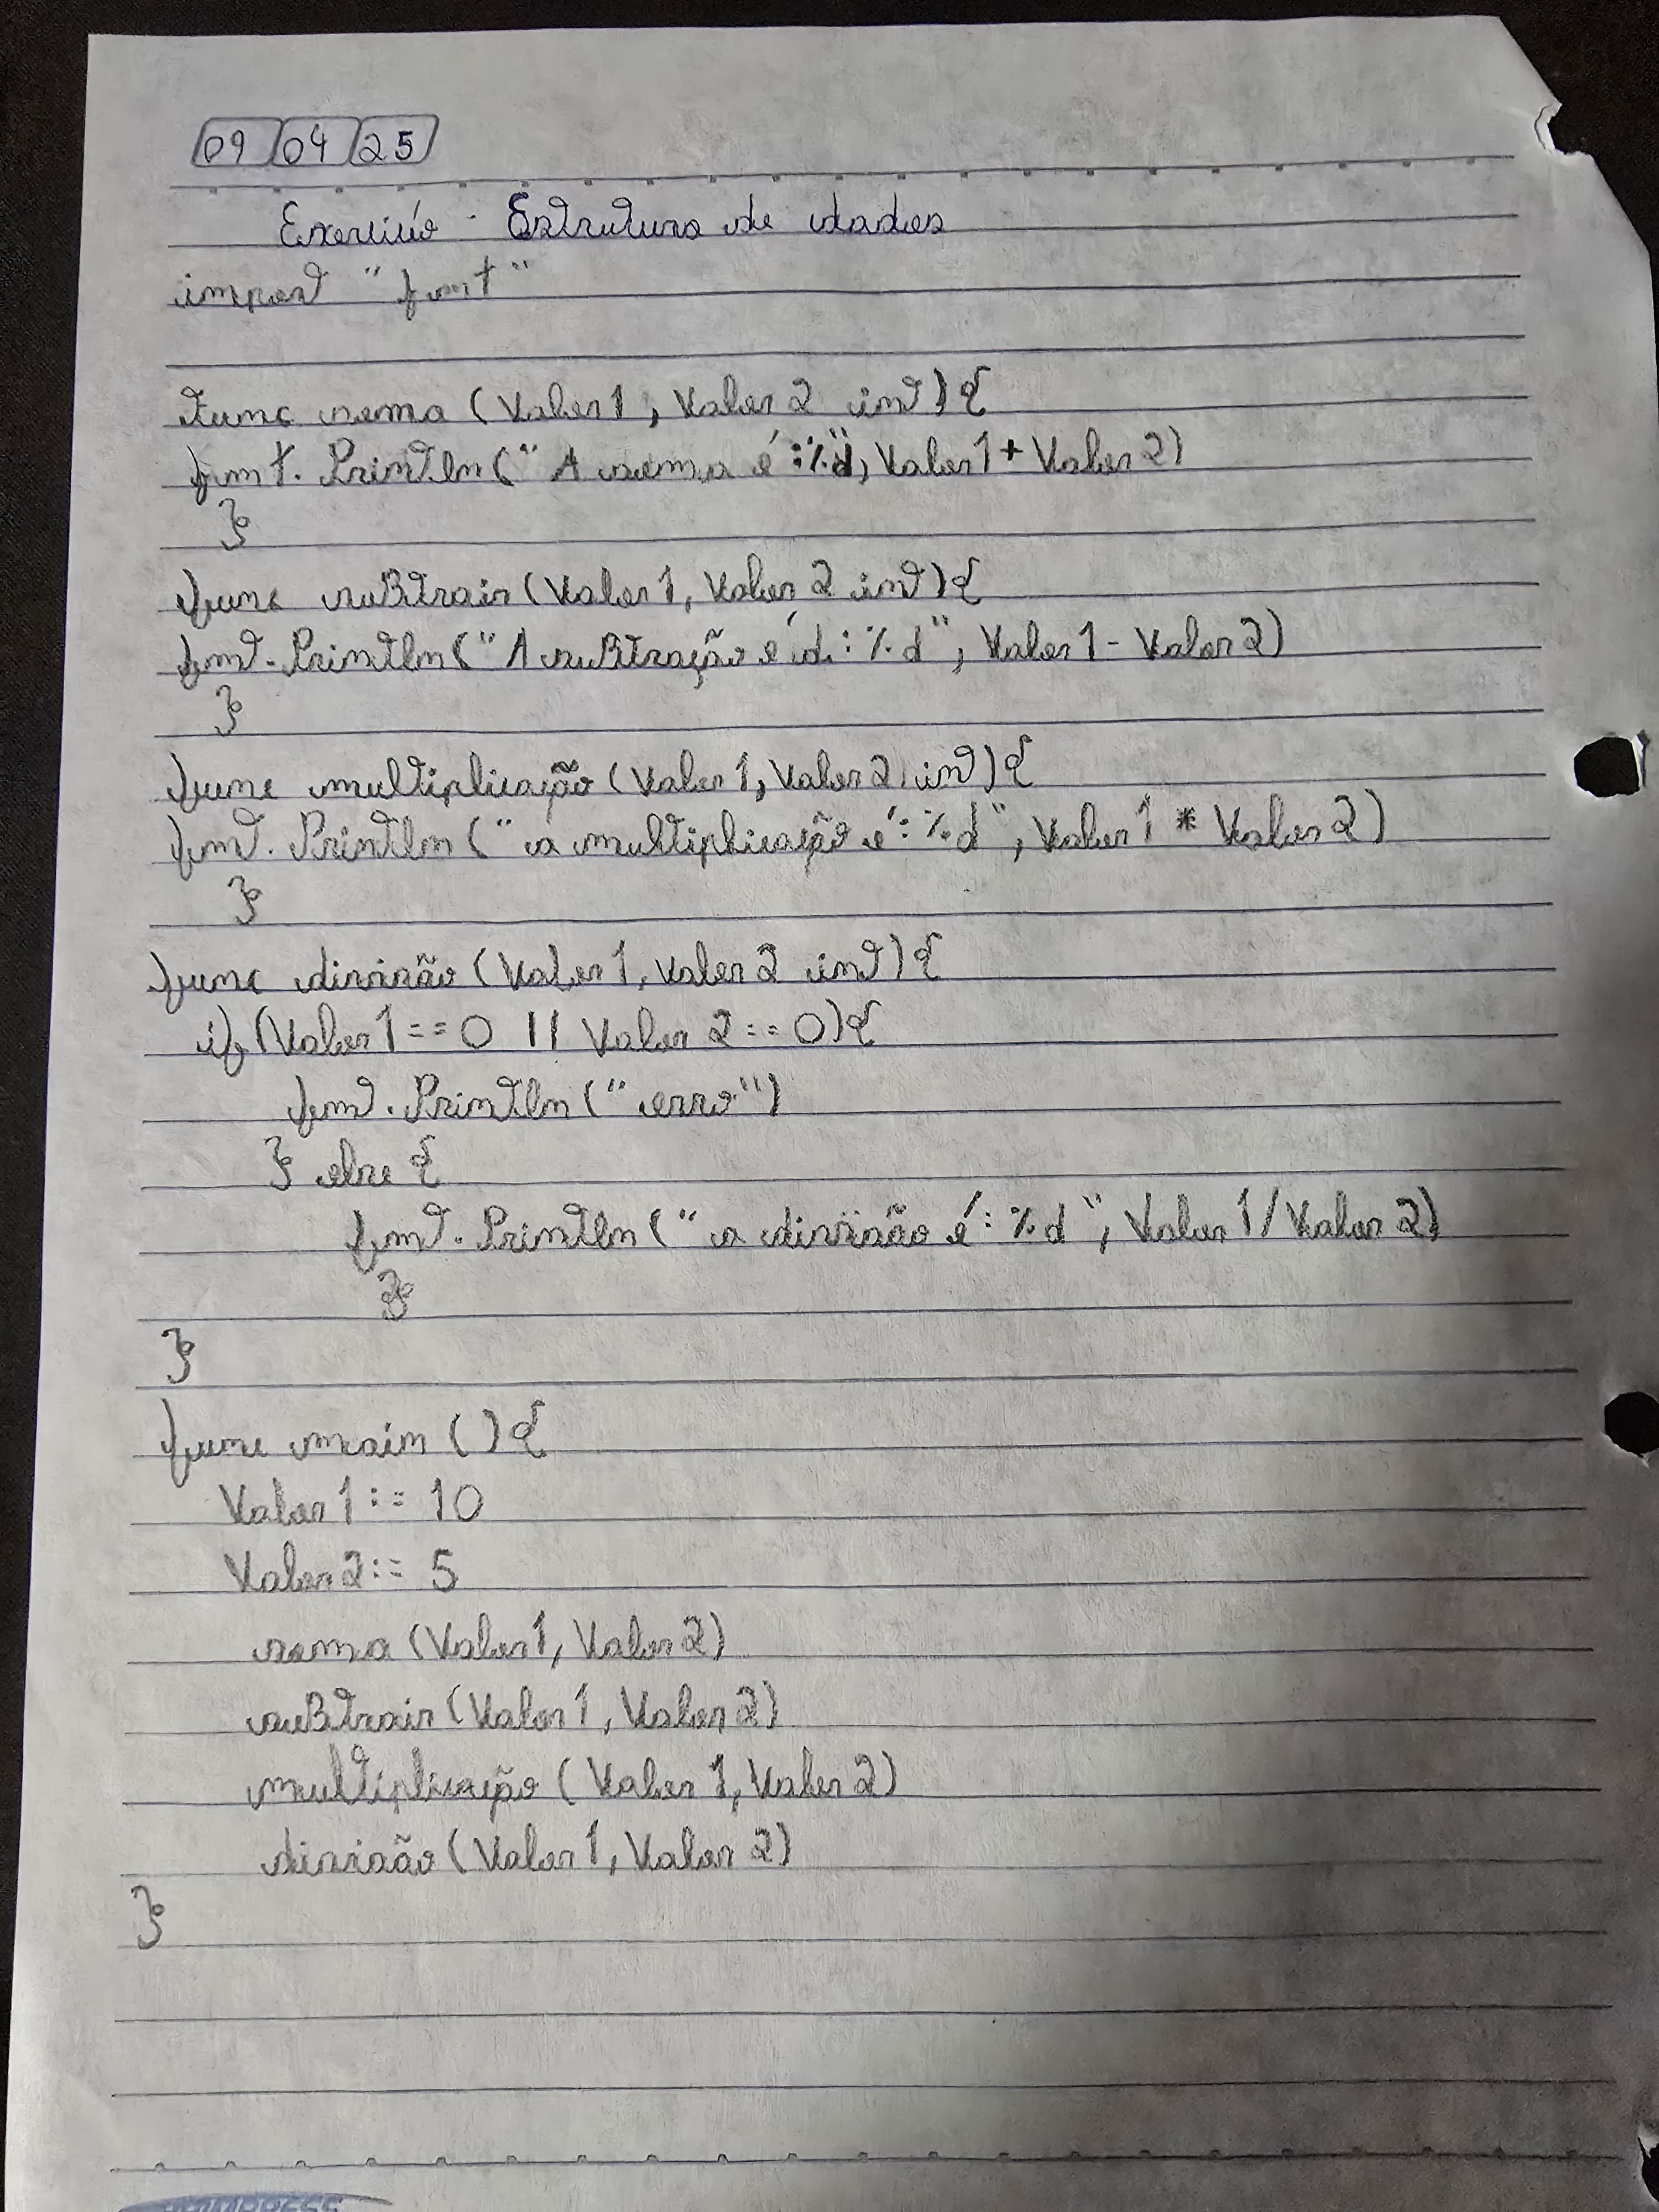 09 04 25
Exercício - Estrutura de dados
import "fmt"
func soma (Valor1, Valor2 int){
fmt.Println("A soma é :%d", Valor1 + Valor2)
}
func suBtrair(Valor1, Valor2 int){
fmt.Println("A suBtração é d:%d", Valor1 - Valor2)
}
func multiplicação (Valor1, Valor2 int){
fmt.Println("a multiplicação é:%d", Valor1 * Valor2)
}
func divisão (Valor1, Valor2 int){
if (Valor1==0 || Valor2==0){
fmt.Println("erro")
} else {
fmt.Println("a divisão é:%d", Valor1/Valor2)
}
}
func main (){
Valor1:= 10
Valor2:= 5
soma (Valor1, Valor2)
suBtrair(Valor1, Valor2)
multiplicação (Valor1, Valor2)
divisão (Valor1, Valor2)
}